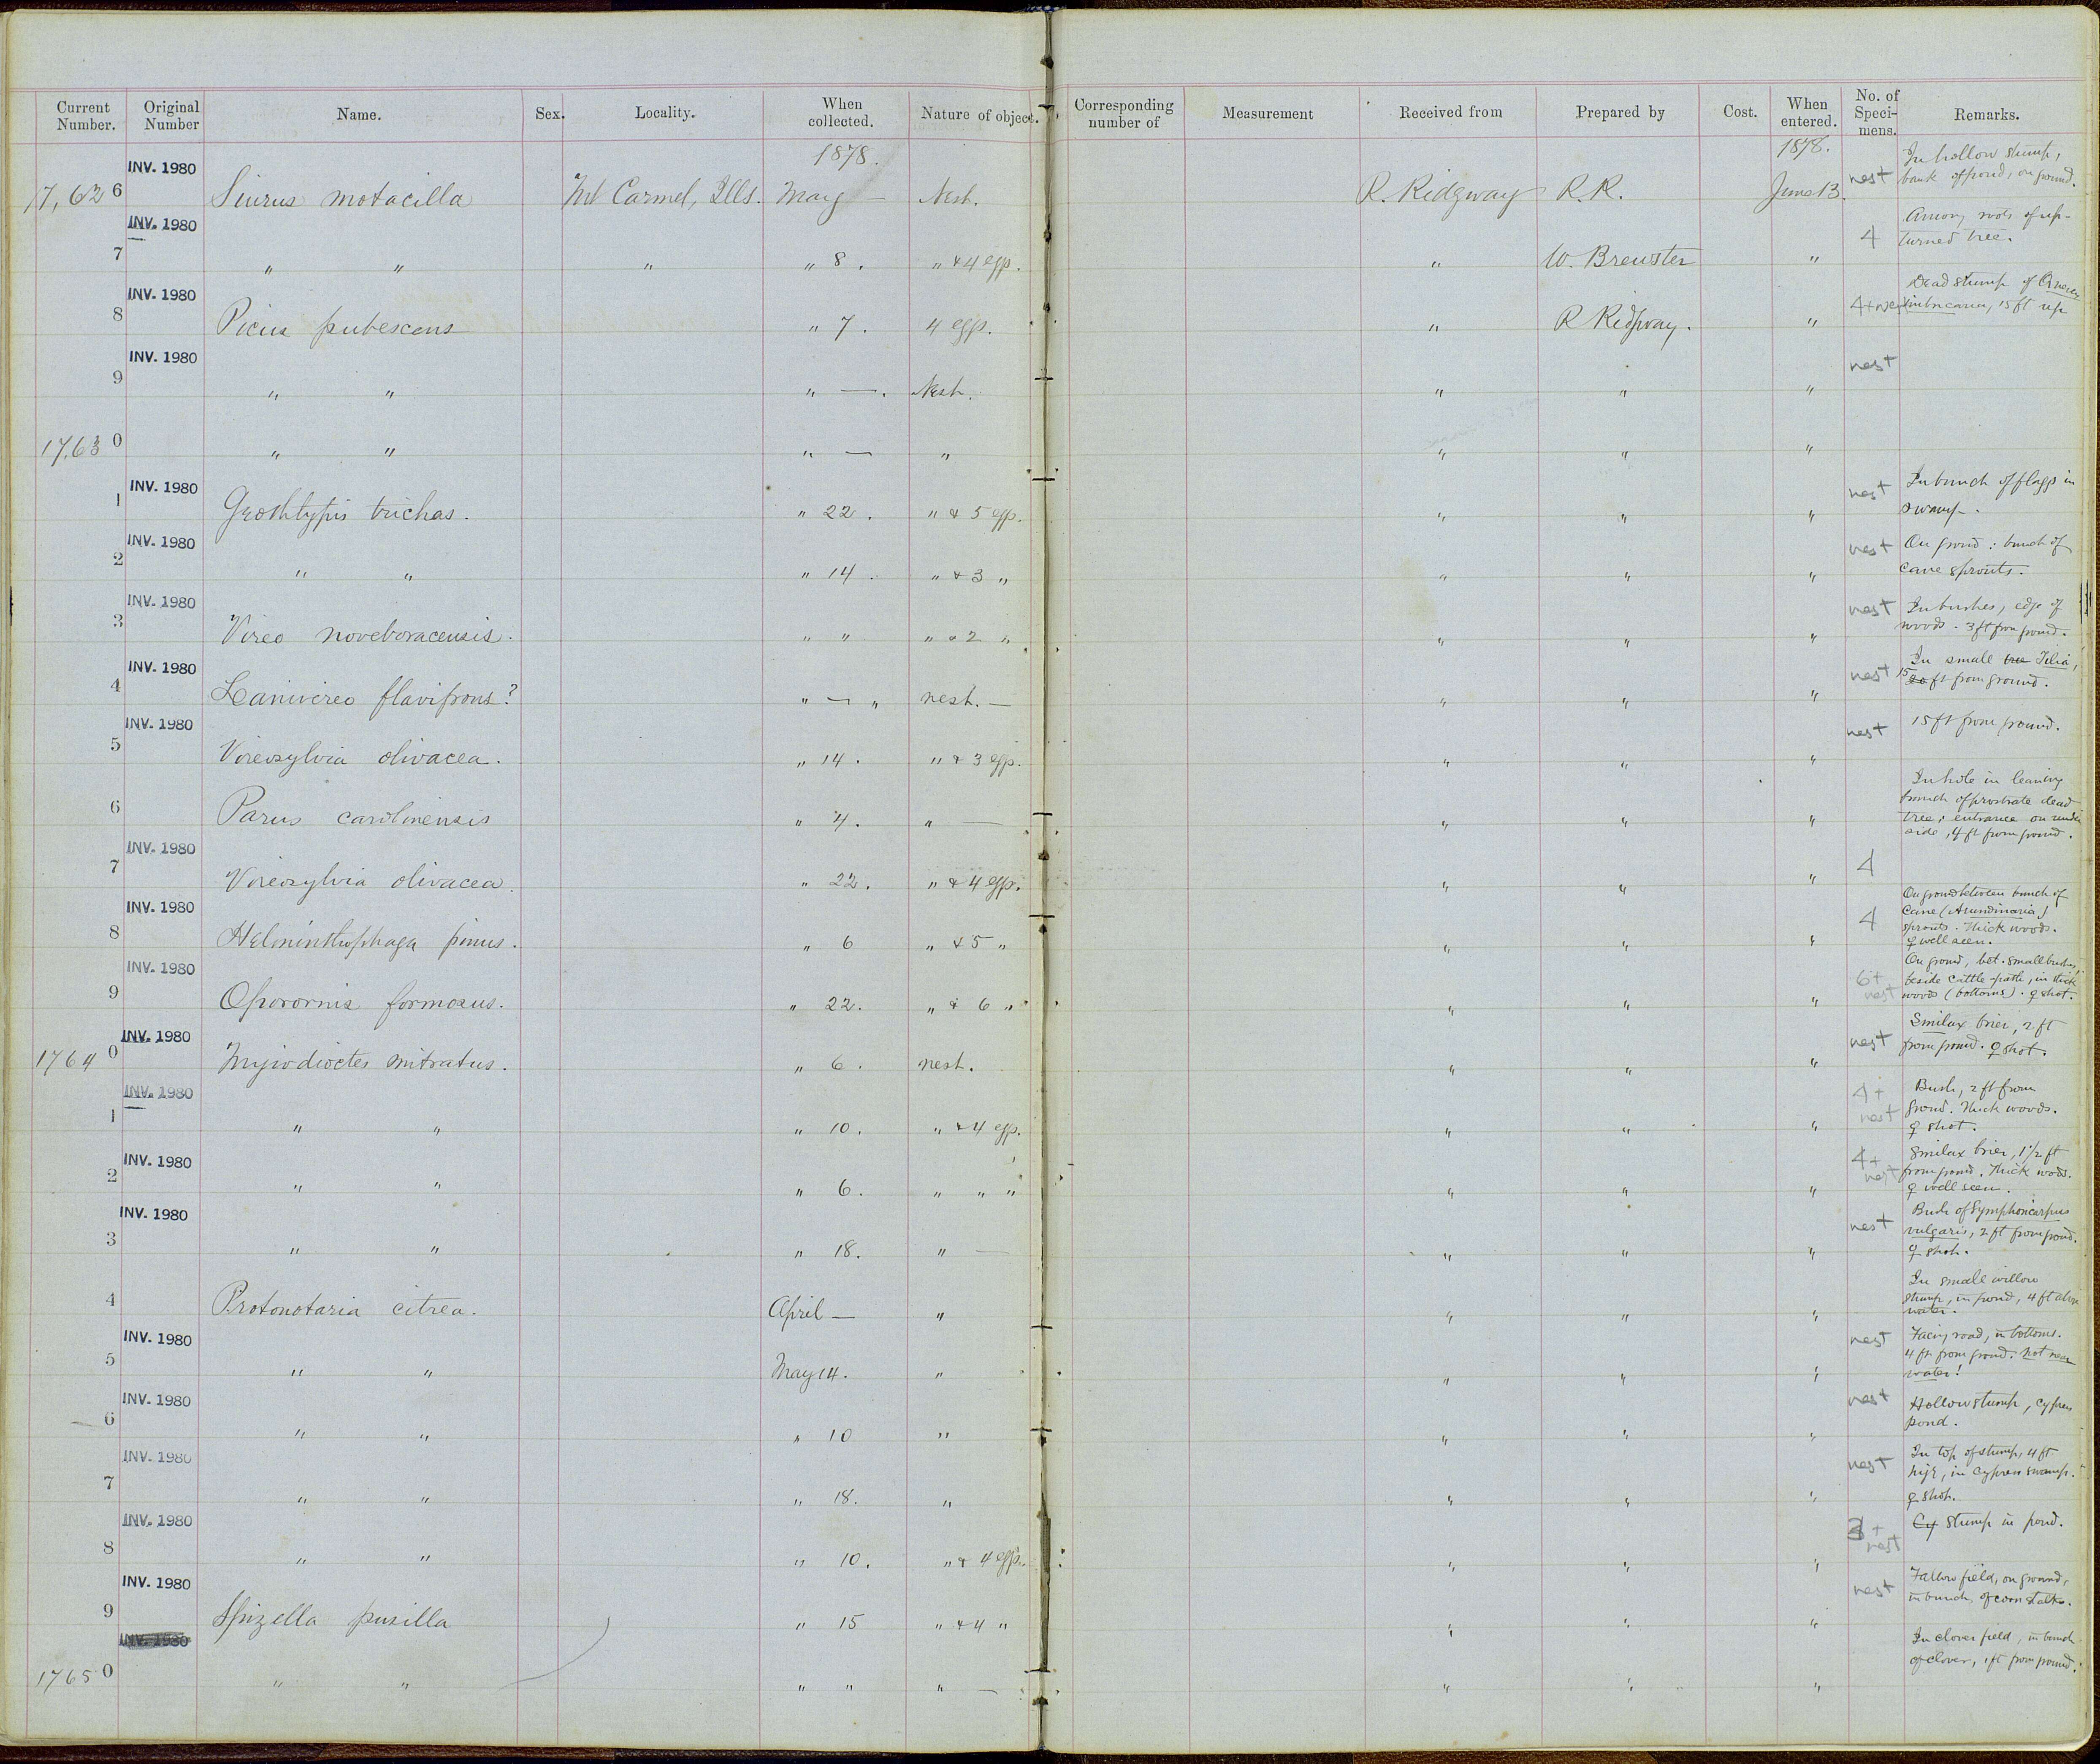 Current Number. Original Number Name. Sex. Locality. When collected. Nature of object. Corresponding number of Measurement Received from Prepared by Cost. When entered. No. of Specimens. Remarks.
1878. 1878.
INV. 1980
17,626 Siurus motacilla Mt Carmel, Ills. May — Nest. R. Ridgway R.R. June 13. nest In hollow stump, bank of pond, on ground.
INV. 1980
7 " " " " 8. " & 4 egg. " W. Brewster " 4 Among roots of up-turned tree.
INV. 1980
8 Picus pubescens " 7. 4 egg. " R Ridgway. " 4+nest Dead stump of Quercus imbricaria, 15 ft up
INV. 1980
9 " " " —. Nest. " " " nest
17,630 " " " — " " " "
INV. 1980
1 Geothlypis trichas. " 22. " & 5 egg. " " " nest In bunch of flags in swamp.
INV. 1980
2 " " " 14. " & 3 " " " " nest On ground; bunch of cane sprouts.
INV. 1980
3 Vireo noveboracensis. " " " & 2 " " " " nest In bushes, edge of woods. 3 ft from ground.
INV. 1980
4 Lanivireo flavifrons? " — " nest. — " " " nest In small tree Tilia, 15 20 ft from ground.
INV. 1980
5 Vireosylvia olivacea. " 14. " & 3 egg. " " " nest 15 ft from ground.
6 Parus carolinensis " 4. " — " " " In hole in leaning branch of prostrate dead tree; entrance on under side, 4 ft from ground.
INV. 1980
7 Vireosylvia olivacea. " 22. " & 4 egg. " " " 4
INV. 1980
8 Helminthophaga pinus. " 6 " & 5 " " " " 4 On ground between bunch of Cane (Arundinaria) sprouts. Thick woods. ♀ well seen.
INV. 1980
9 Oporornis formosus. " 22. " & 6 " " " " 6+ nest On ground, bet. small bushes, beside cattle-path, in thick woods (bottoms). ♀ shot.
INV. 1980
17640 Myiodioctes mitratus. " 6. nest. " " " nest Smilax brier, 2 ft from ground. ♀ shot.
INV. 1980
1 " " " 10. " & 4 egg. " " " 4+ nest Bush, 2 ft from ground. Thick woods. ♀ shot.
INV. 1980
2 " " " 6. " " " " " " 4+ nest Smilax brier, 1 1/2 ft from ground. Thick woods. ♀ well seen.
INV. 1980
3 " " " 18. " — " " " nest Bush of Symphoricarpus vulgaris, 2 ft from ground. ♀ shot.
4 Protonotaria citrea. April — " " " " In small willow stump, in pond, 4 ft above water.
INV. 1980
5 " " May 14. " " " " nest Facing road, in bottoms. 4 ft from ground. Not near water!
INV. 1980
6 " " " 10 " " " " nest Hollow stump, cypress pond.
INV. 1980
7 " " " 18. " " " " nest In top of stump, 4 ft high, in Cypress swamp. ♀ shot.
INV. 1980
8 " " " 10. " & 4 egg. " " " 3+ nest Cy stump in pond.
INV. 1980
9 Spizella pusilla " 15 " & 4 " " " " nest Fallow field, on ground, in bunch of corn stalks.
INV. 1980
17650 " " " " " — " " " In clover field, in bunch of clover, 1 ft from ground.